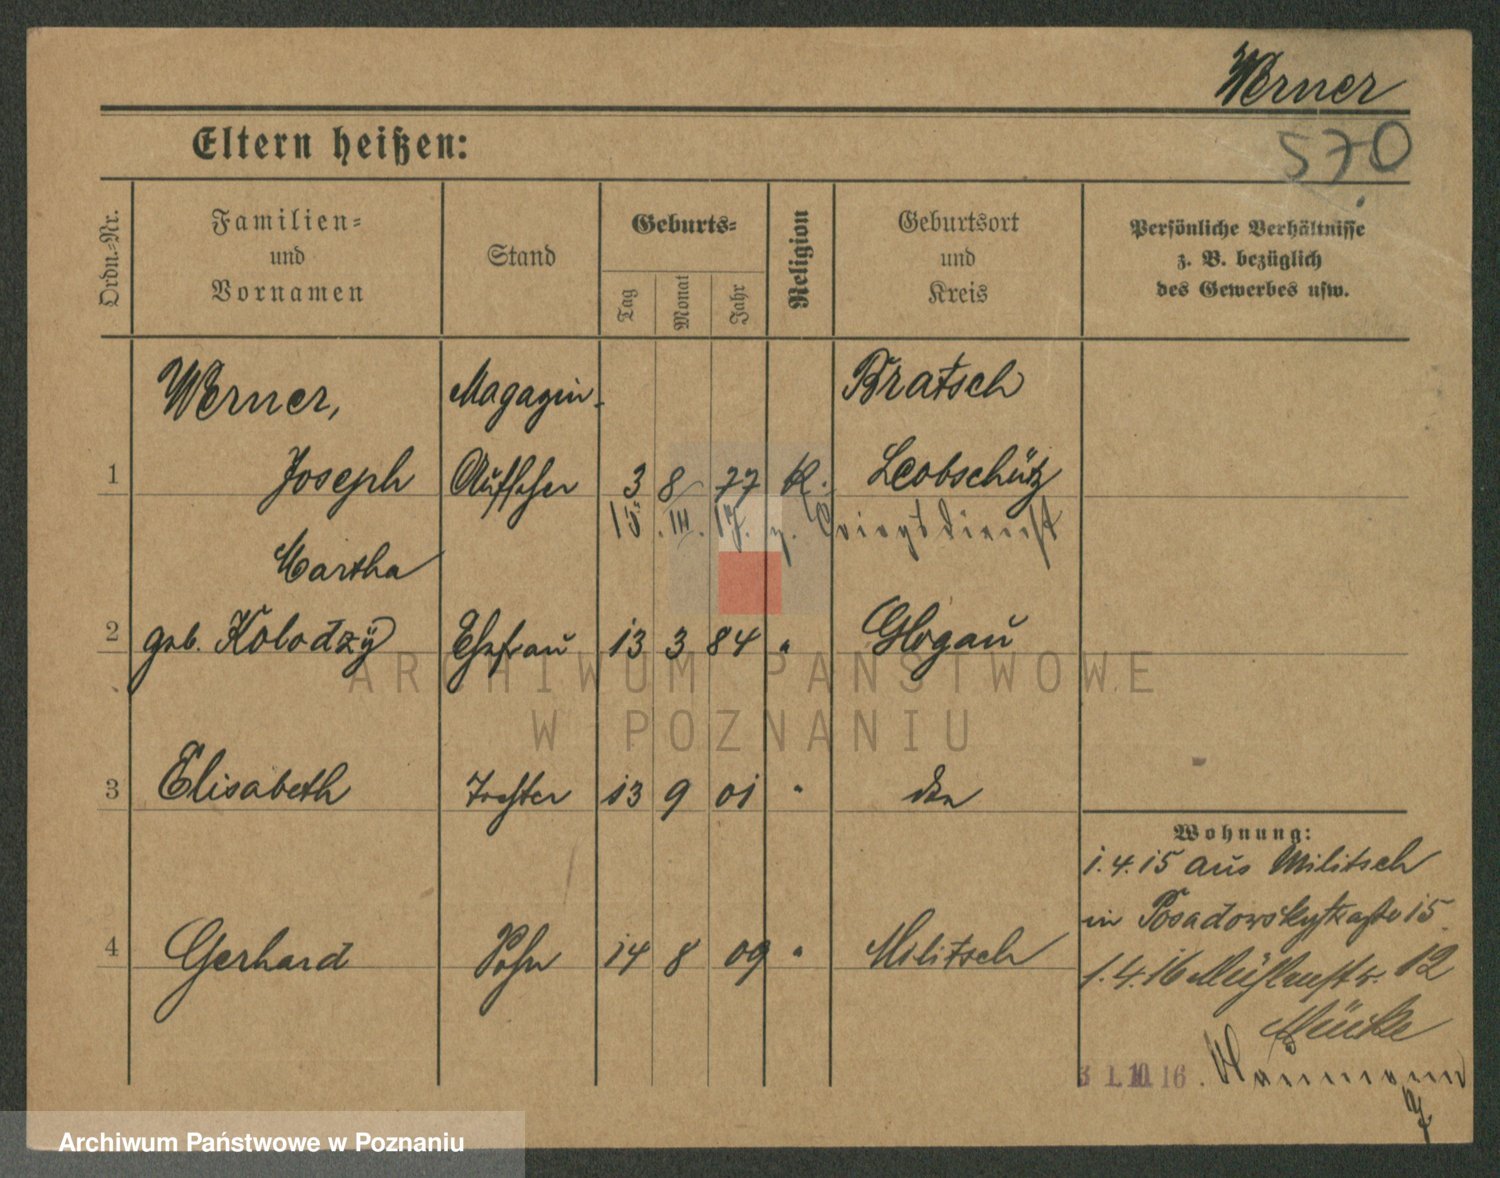 Werner
570
Eltern heißen:
Ordn.-Nr.
Familien-
und
Vornamen
Stand
Geburts-
Tag
Monat
Jahr
Religion
Geburtsort
und
Kreis
Persönliche Verhältnisse
z. B. bezüglich
des Gewerbes usw.
Werner, Magazin- Bratsch
1 Joseph Aufseher 3 8 77 K. Leobschütz
15. III. 17. z. Kriegsdienst
Martha
2 geb. Kolodzÿ Ehefrau 13 3 84 " Glogau
3 Elisabeth Tochter 13 9 01 "
Wohnung:
1.4.15 aus Militsch
in Posadowskystraße 15
4 Gerhard Sohn 14 8 09 " Militsch
1.4.16 Mühlenstr. 12
Mücke
31.10.16. Naumann
ARCHIWUM PAŃSTWOWE
W POZNANIU
Archiwum Państwowe w Poznaniu